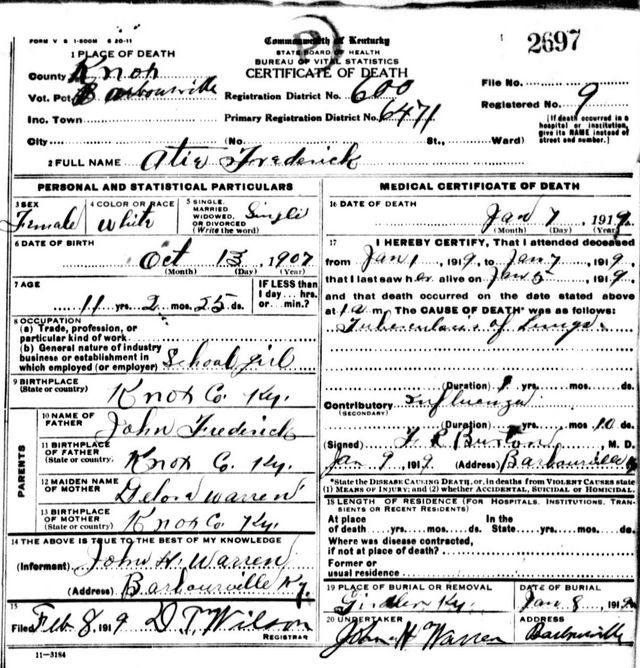 FORM V S 1-500M 6 20-11
Commonwealth of Kentucky
STATE BOARD OF HEALTH
BUREAU OF VITAL STATISTICS
CERTIFICATE OF DEATH
2697
1 PLACE OF DEATH
County Knox
Vot. Pct Barbourville
Inc. Town
City (No. St., Ward)
Registration District No. 600
Primary Registration District No. 6471
File No.
Registered No. 9
[If death occurred in a
hospital or institution,
give its NAME instead of
street and number.]
2 FULL NAME Atie Frederick
PERSONAL AND STATISTICAL PARTICULARS
3 SEX Female
4 COLOR OR RACE White
5 SINGLE, MARRIED WIDOWED, OR DIVORCED (Write the word) Single
6 DATE OF BIRTH
Oct 13, 1907
(Month) (Day) (Year)
7 AGE
11 yrs. 2 mos. 25 ds.
IF LESS than
1 day... hrs.
or... min.?
8 OCCUPATION
(a) Trade, profession, or
particular kind of work
(b) General nature of industry
business or establishment in
which employed (or employer) School girl
9 BIRTHPLACE
(State or country) Knox Co. Ky.
PARENTS
10 NAME OF
FATHER John Frederick
11 BIRTHPLACE
OF FATHER
(State or country) Knox Co. Ky.
12 MAIDEN NAME
OF MOTHER Warren
13 BIRTHPLACE
OF MOTHER
(State or country) Knox Co. Ky.
14 THE ABOVE IS TRUE TO THE BEST OF MY KNOWLEDGE
(Informent) John H. Warren
(Address) Barbourville Ky.
15
Filed Feb 8, 1919 D T Wilson
REGISTRAR
11-3184
MEDICAL CERTIFICATE OF DEATH
16 DATE OF DEATH
Jan 7, 1919
(Month) (Day) (Year)
17 I HEREBY CERTIFY, That I attended deceased
from Jan 1, 1919, to Jan 7, 1919,
that I last saw her alive on Jan 5, 1919,
and that death occurred on the date stated above
at 1 a m. The CAUSE OF DEATH* was as follows:
Tuberculosis of Lungs
(Duration) 1 yrs. mos. ds.
Contributory Influenza
(SECONDARY)
(Duration) yrs. mos. 10 ds.
(Signed) Burton, M. D.
Jan 9, 1919 (Address) Barbourville
*State the DISEASE CAUSING DEATH, or, in deaths from VIOLENT CAUSES state
(1) MEANS OF INJURY; and (2) whether ACCIDENTAL, SUICIDAL or HOMICIDAL.
18 LENGTH OF RESIDENCE (FOR HOSPITALS, INSTITUTIONS, TRANSIENTS OR RECENT RESIDENTS)
At place of death yrs. mos. ds. In the State yrs. mos. ds.
Where was disease contracted,
if not at place of death?
Former or
usual residence
19 PLACE OF BURIAL OR REMOVAL
Ky.
DATE OF BURIAL
Jan 8, 1919
20 UNDERTAKER
John H Warren
ADDRESS
Barbourville